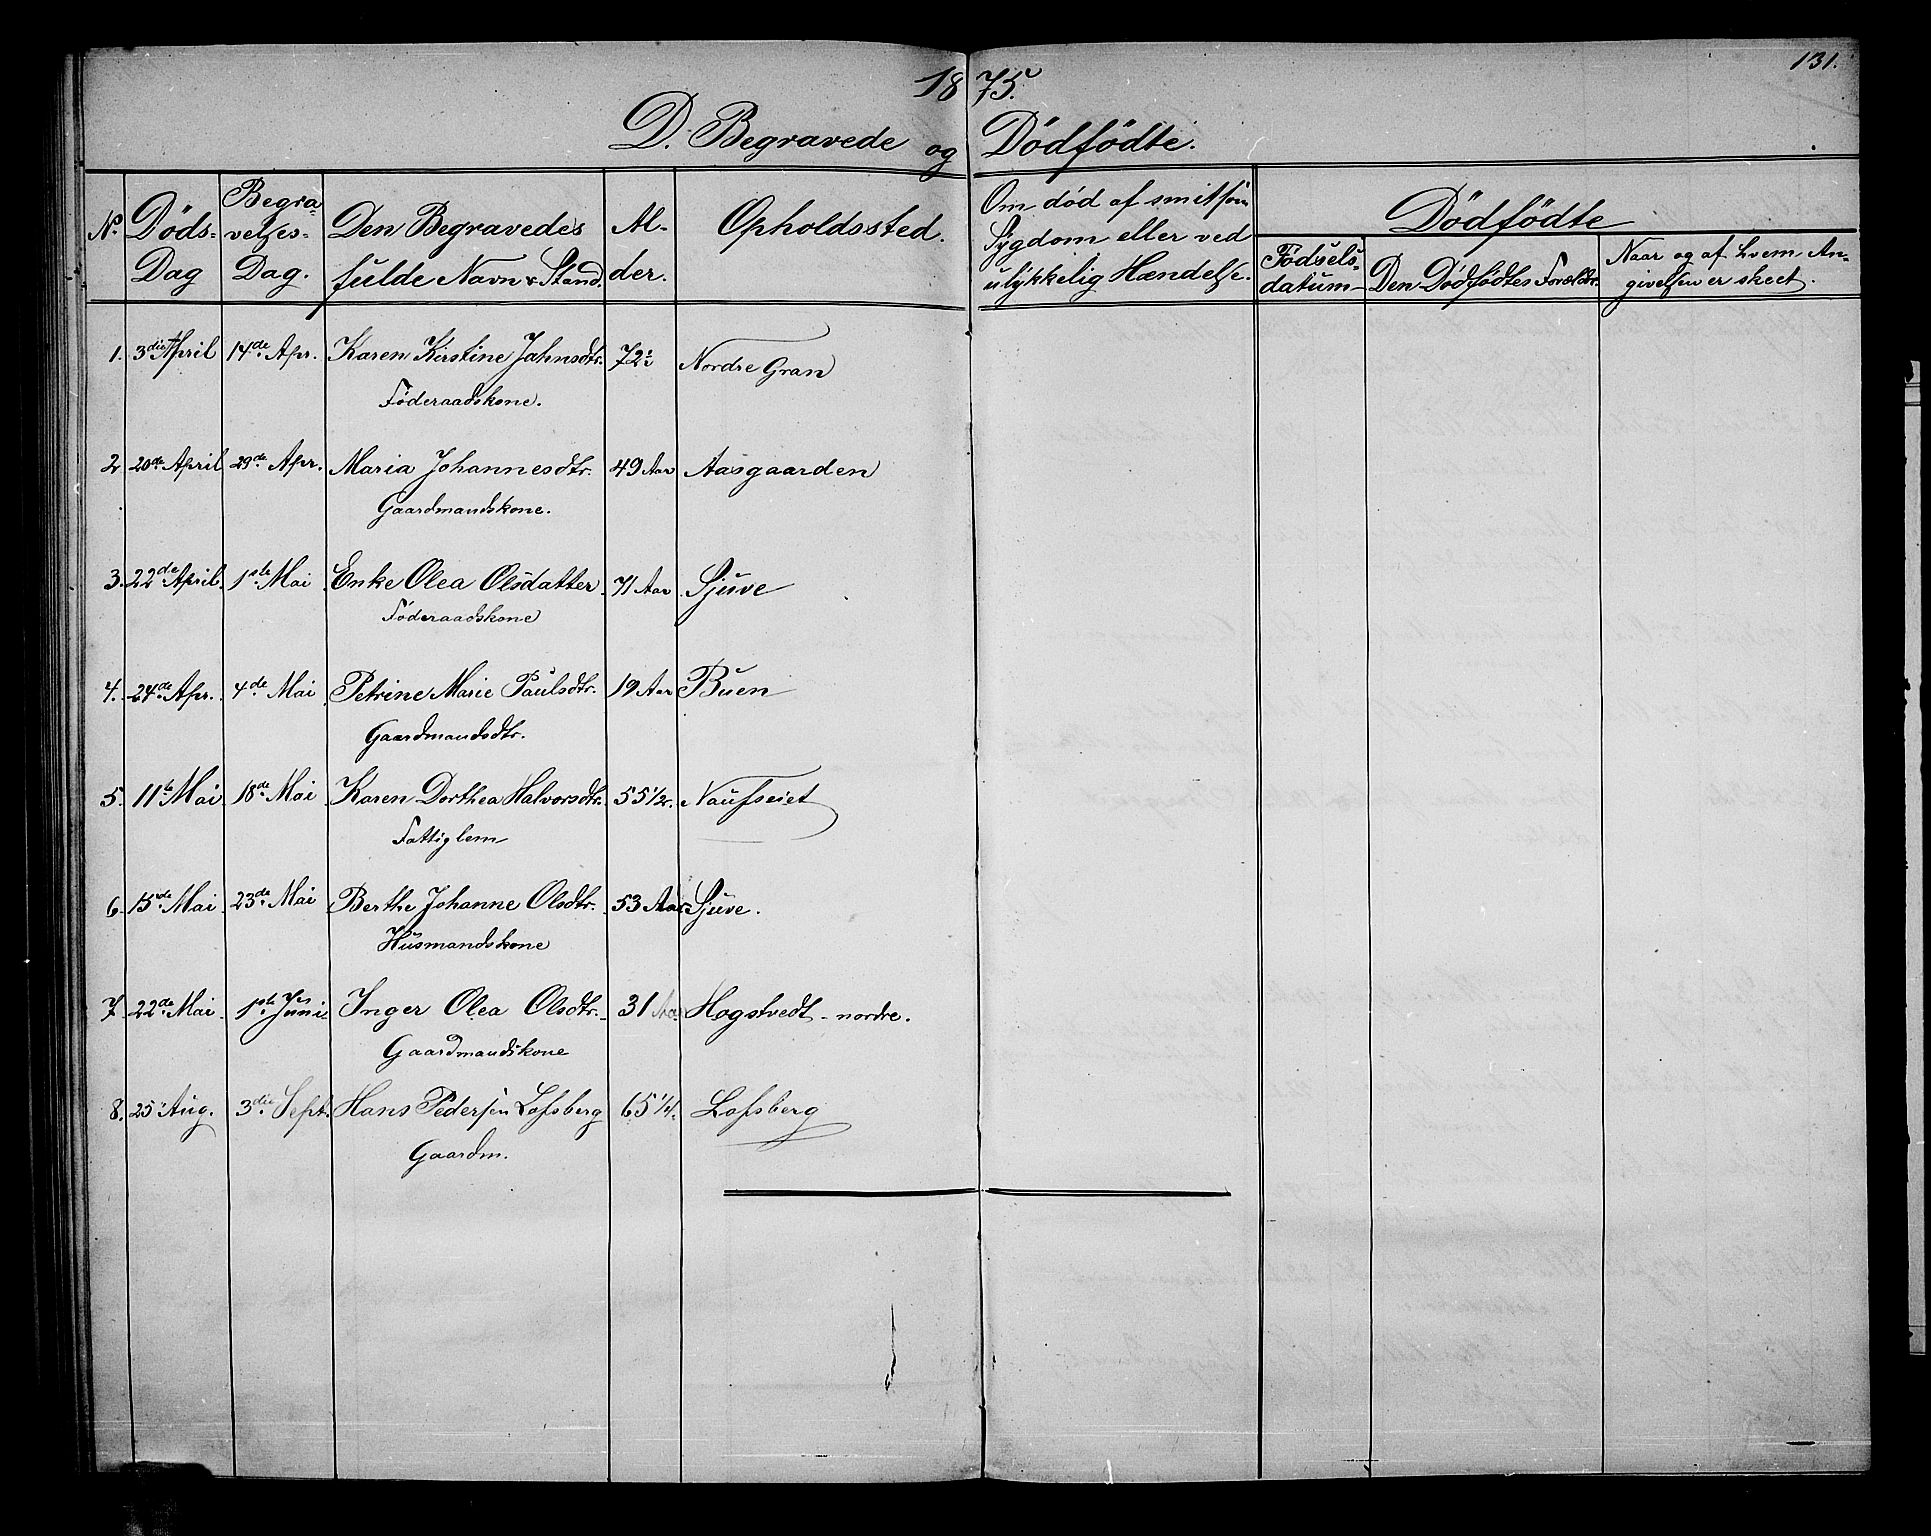 131.
1875.
D. Begravede og Dödfödte.
No. Döds-Dag Begravelses-Dag. Den Begravedes fulde Navn & Stand. Alder. Opholdssted. Om död af smitsom Sygdom eller ved ulykkelig Hændelse. Dödfödte
Födselsdatum Den Dödfödtes Forældre. Naar og af hvem Angivelsen er skeet.
1. 3die April 14de Apr. Karen Kirstine Jahnsdtr. 72½ Nordre Gran
Föderaadskone.
2 20de April 29de Apr. Maria Johannesdtr. 49 Aar Aasgaarden
Gaardmandskone.
3. 22de April. 1ste Mai Enke Olea Olsdatter 71 Aar Sjuve
Föderaadskone
4. 24de Apr. 4de Mai Petrine Marie Paulsdtr. 19 Aar Buen
Gaardmandsdtr.
5. 11te Mai 18de Mai Karen Dorthea Halvorsdtr. 55 1/2. Naufseiet
Fattiglem
6. 15de Mai 23de Mai Berthe Johanne Olsdtr. 53 Aar Sjuve.
Husmandskone
7. 22de Mai 1ste Juni Inger Olea Olsdtr. 31 Aar Hogstvedt - nordre.
Gaardmandskone
8. 25 Aug. 3die Sept. Hans Pedersen Lofsberg 65 1/4. Lofsberg
Gaardm.